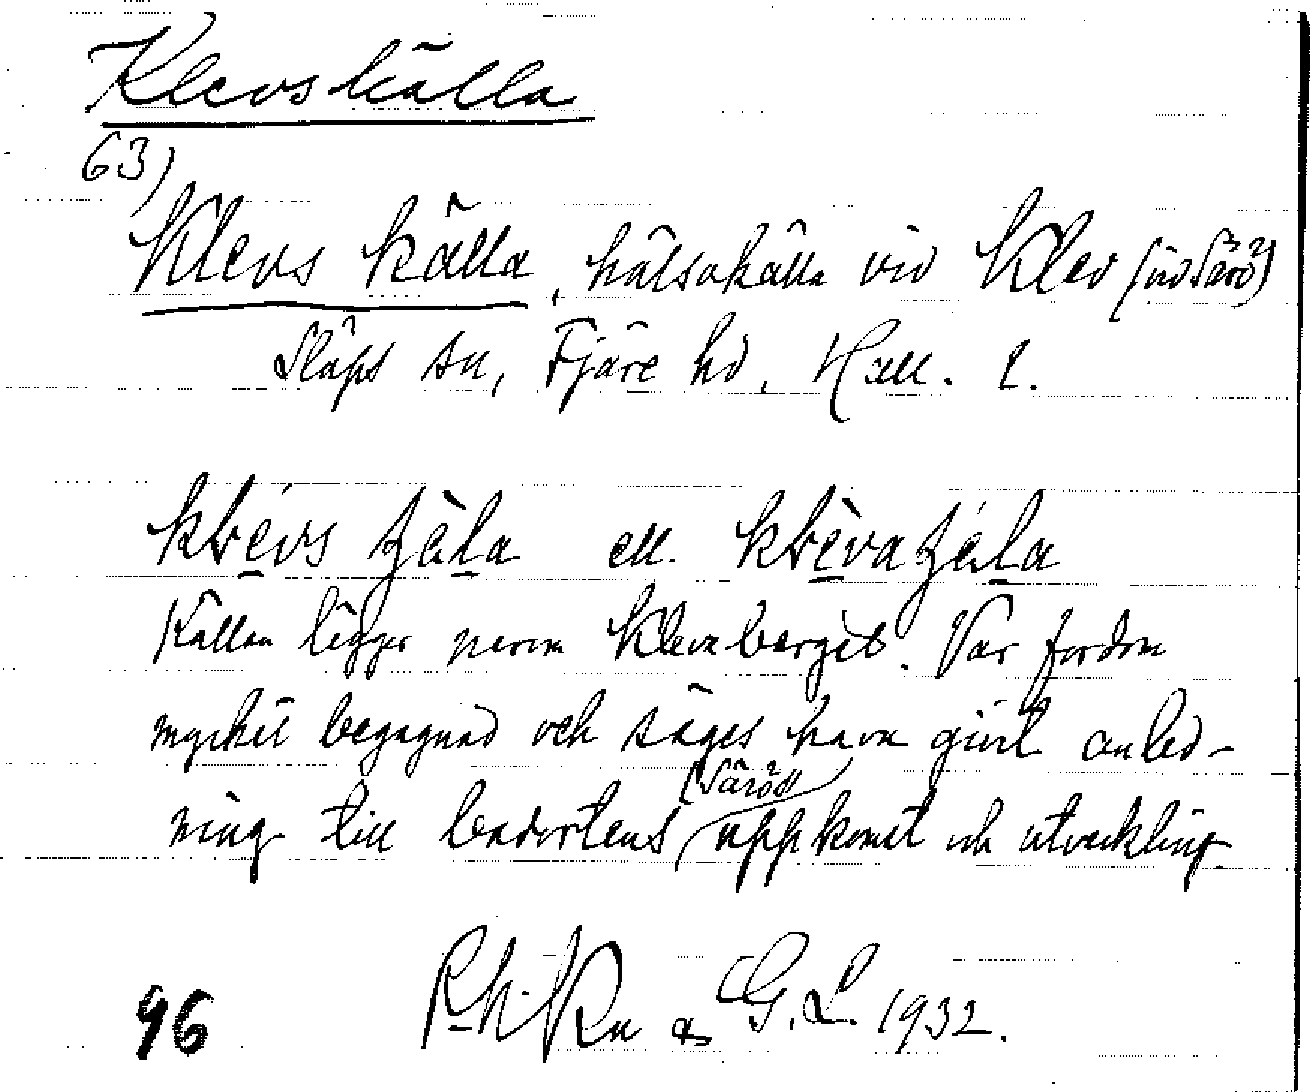 Klevs källa
63)
Klevs källa, hälsokälla vid Klev (vid Särö?)
Släps sn, Fjäre hd, Hall. l.
ell.
Källan ligger nerom Klevaberget. Var fordom
mycket begagnad och säges hava givit anled-
ning till badortens (Särös) uppkomst och utveckling.
& G. L. 1932.
96